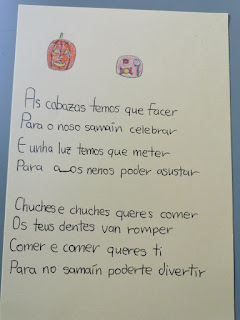 As cabazas temos que facer
Para o noso samaín celebrar
E unha luz temos que meter
Para aos nenos poder asustar
Chuches e chuches queres comer
Os teus dentes van romper
Comer e comer queres ti
Para no samaín poderte divertir